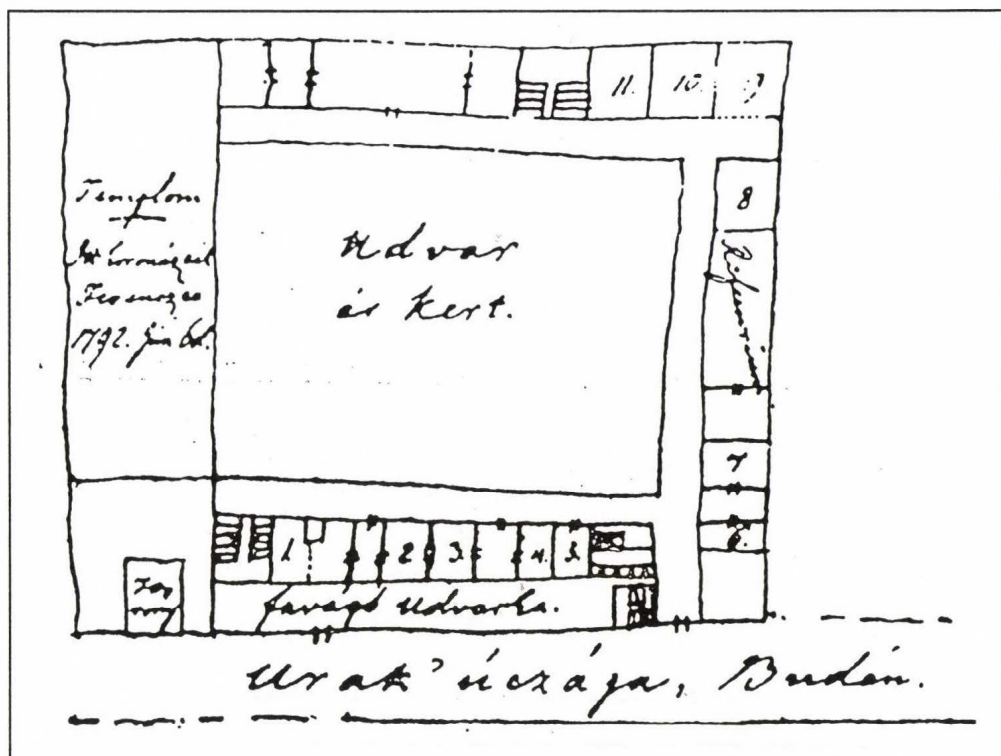 11. 10. 9
8
Templom
Itt koronázták
Ferencz
1792. Jun 6d.
Udvar
és Kert.
Refectorium
7
6.
1 2 3. 4. 5.
Tor
ony
favágó udvarka.
Urak' úczája, Budán.